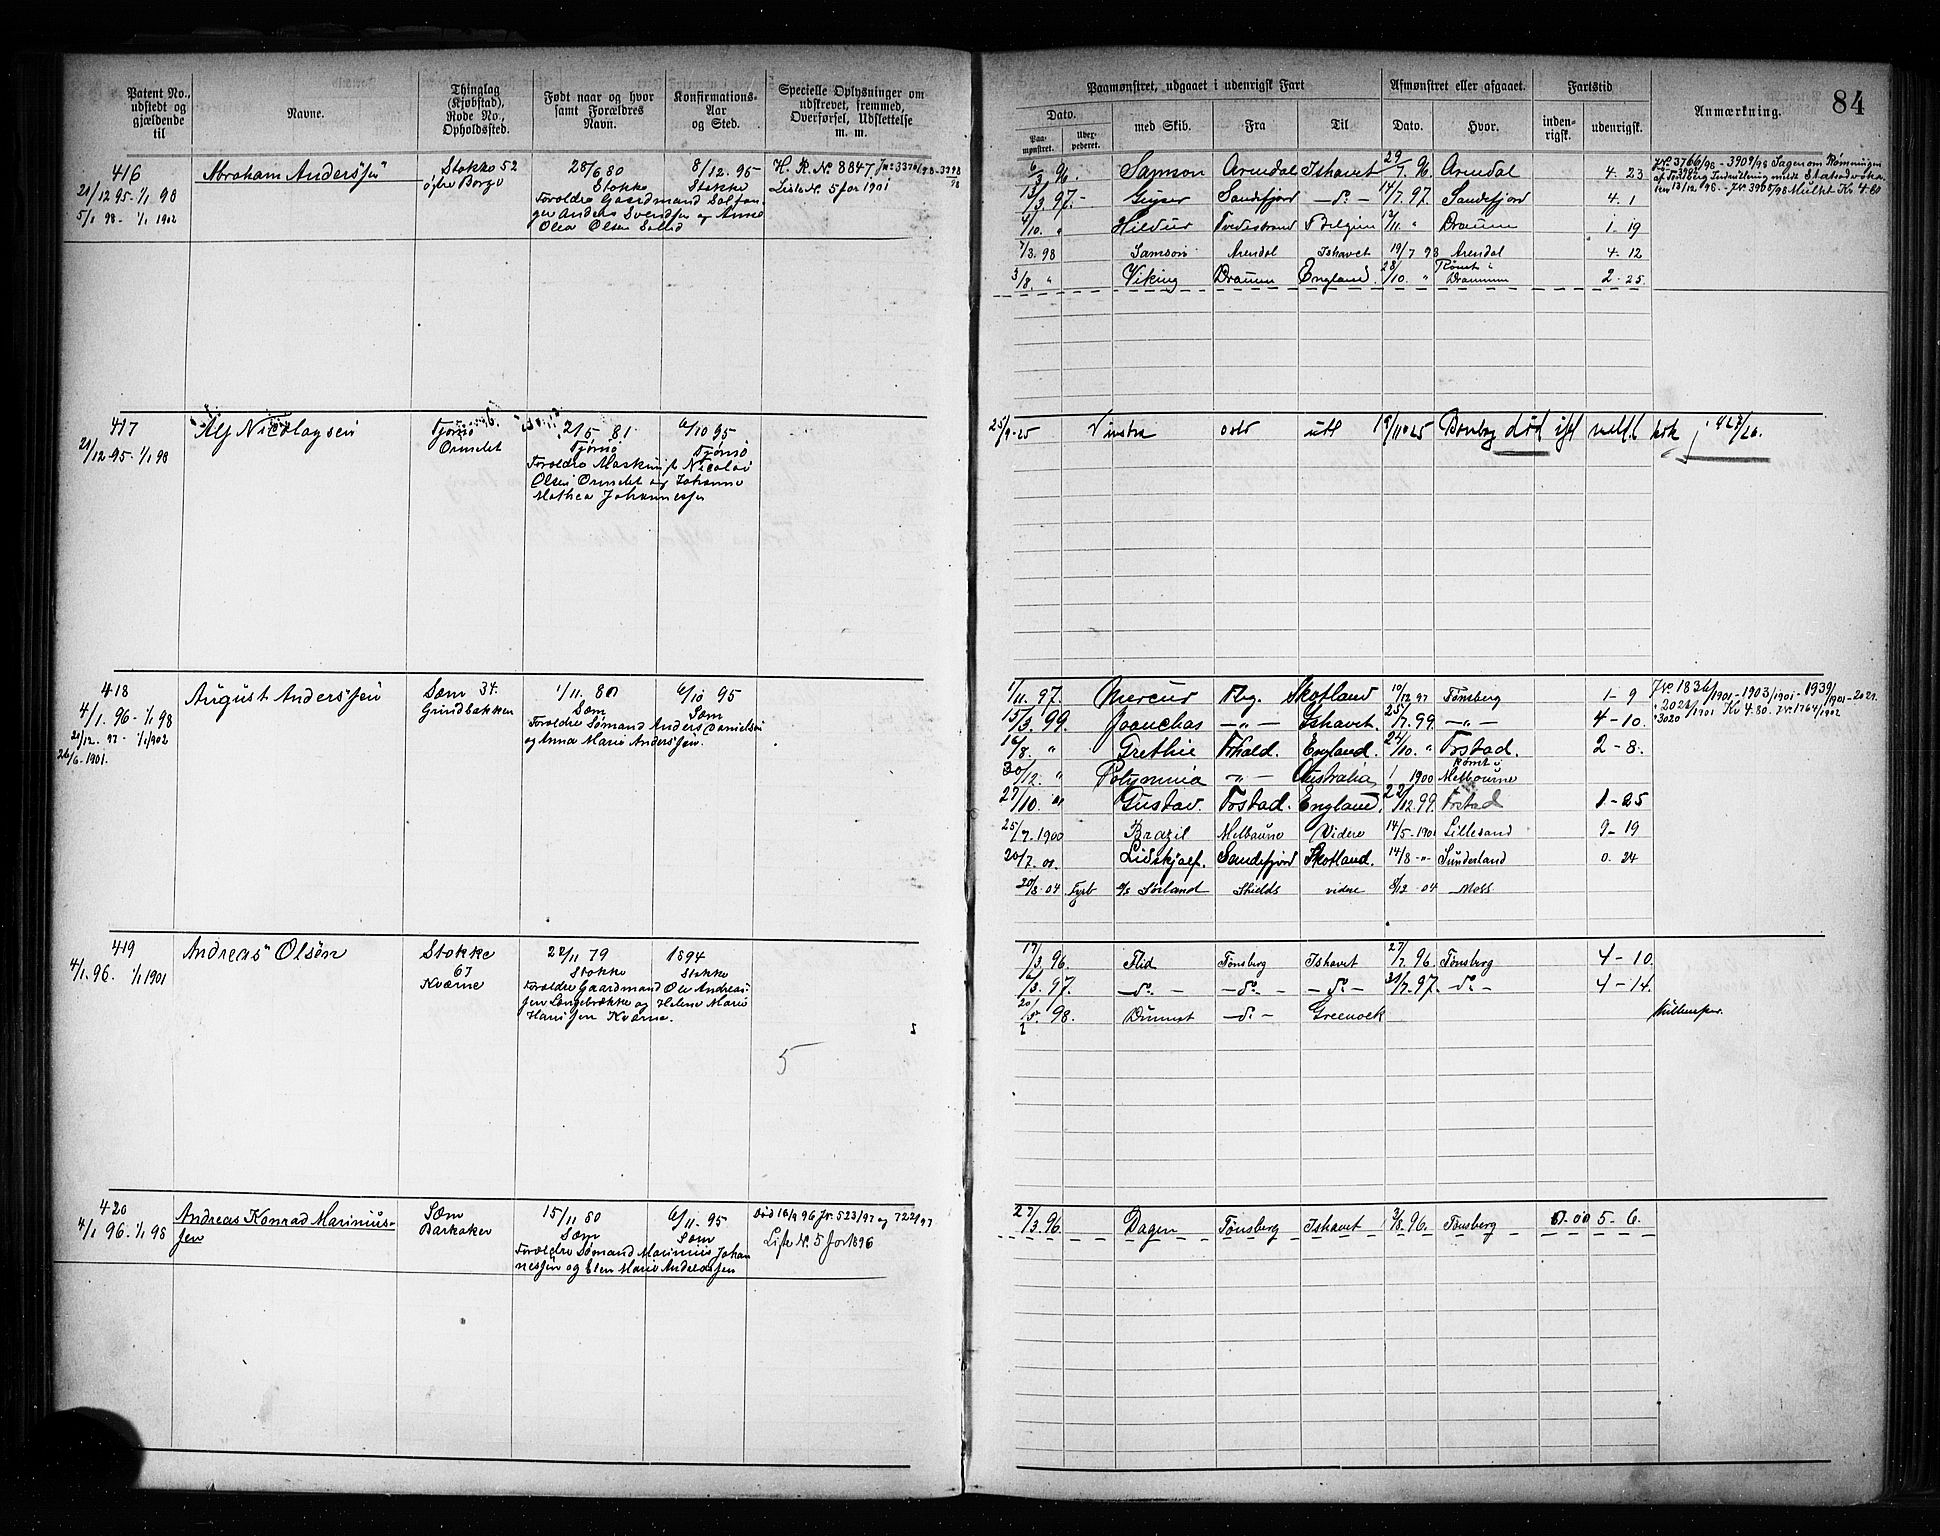 84
Patent No., udstedt og gjældende til
Navne.
Thinglag (Kjøbstad), Rode No., Opholdssted.
Født naar og hvor samt Forældres Navn.
Konfirmations-Aar og Sted.
Specielle Oplysninger om udskrevet, fremmed, Overførsel, Udslettelse m. m.
Paamønstret, udgaaet i udenrigsk Fart
Dato.
Paamønstret.
med Skib.
Fra
Til
Afmønstret eller afgaaet.
Dato.
Hvor.
Fartstid
inden-rigsk.
udenrigsk.
Anmærkning.
416
21/12 95 - 1/1 98
5/1 98 - 1/1 1902
Abraham Anderssen
Stokke 52
øfre Borge
28/6 80
Stokke
Forældre Gaardmand
Anders Svendsen og Anne
Olea Olsen
8/12. 95
Stokke
H. R. No 8847
Liste No. 5 for 1901
6/3 96 Samson Arendal Ishavet 29/7. 96. Arendal 4. 23
13/3 97. Geyser Sandefjord - do - 14/7 97. Sandefjord 4. 1
4/10. " Hildur Tvedestrand Belgien 12/11. " Drammen 1. 19
7/3. 98 Samson Arendal Ishavet 19/7 98 Arendal 4. 12
3/8. " Viking Drammen England. 28/10. " Rømt i Drammen 2. 25.
No 3766/98 - 3909/98 Sagen om Rømningen
417
21/12 95. 1/1 98
Alf Nicolaysen
Tjømø
Ormelet
21/5 81
Tjømø
Forældre Maskinist Nicolai
Olsen Ormelet og Johanne
Mathea Johannessen
6/10 95
Tjømø
25/9-25 Vinstra Oslo utl 19/11 25 Bombay død ifl meld.
418
4/1. 96 - 1/1 98
21/12. 97 - 1/1 1902
26/6-1901.
August Anderssen
Sæm 34.
Grindbakken
1/11. 80
Sæm
Forældre Sømand Anders Danielsen
og Anna Marie Anderssen.
6/10 95
Sæm
1/11. 97. Mercur Tbg. Skotland 10/12. 97 Tønsberg 1 - 9
15/3. 99. Joanchas - " - Ishavet. 25/7. 99. - " - 4 - 10.
16/8. " Grethe Frhald. England. 24/10. " Frstad. 2 - 8.
30/12. " Polymnia - " - Australia 1 1900 Rømt i Melbourne
27/10. " Gustav. Frstad. England. 22/12. 99. Frstad 1 - 25
25/7. 1900 Brazil Melbourne Videre 14/5. 1901 Lillesand 9 - 19
20/7. 01. Lidskjalf. Sandefjord Skotland. 14/8 - " - Sunderland 0. 24
30/8. 04 Fyrb s/s Sørland Shields videre 8/12. 04 Moss
419
4/1. 96. 1/1 1901
Andreas Olsen
Stokke
67
Kværne
22/11 79
Stokke
Forældre Gaardmand Ole Andreas-
sen Langebrekke og Helene Marie
Hanssen Kværne.
1894
Stokke
5
17/3. 96. Flid Tønsberg Ishavet 27/7. 96. Tønsberg 4 - 10.
6/3. 97. - do - - do - - do - 31/7. 97. - do - 4 - 14.
20/5. 98. - do - Greenock
420
4/1 96. 1/1 98
Andreas Konrad Marinius-
sen
Sæm
Barkaker
15/11 80
Sæm
Forældre Sømand Marinius Johan
nessen og Elen Marie Andersen
6/11. 95
Sæm
Død 16/9 96 Jr. 523/97 og 722/97
Liste No. 5 for 1896
27/3. 96. Dagen Tønsberg Ishavet 3/8. 96. Tønsberg 0.00 5 - 6.